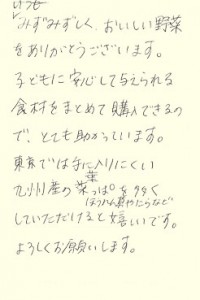 いつも
みずみずしく、おいしい野菜
をありがとうございます。
子どもに安心して与えられる
食材をまとめて購入できるの
で、とても助かっています。
東京では手に入りにくい
九州産の葉っぱを多く
葉
ほうれん草やにらなど
していただけると嬉しいです。
よろしくお願いします。